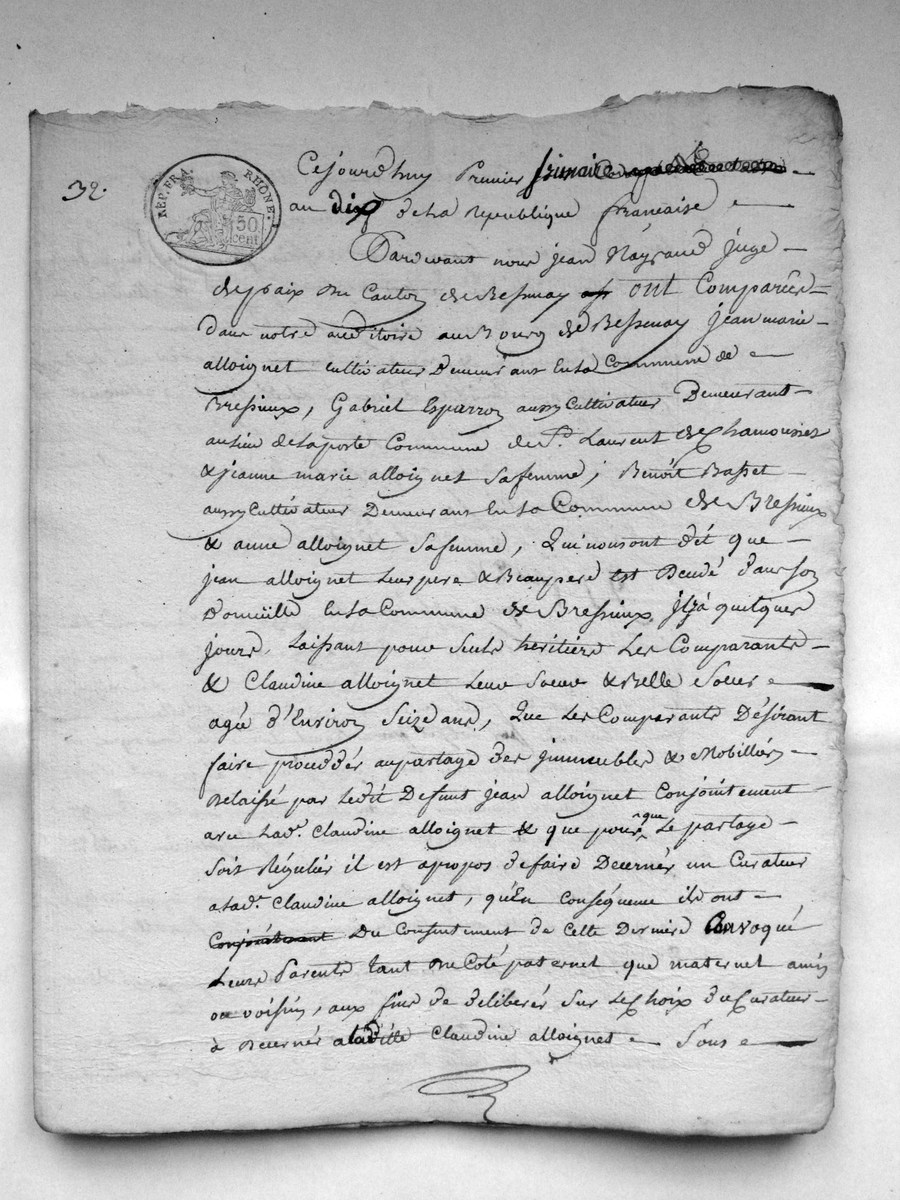 32.
REP. FRA. RHONE.
50 cent
Cejourdhuy Premier frimaire
an dix de la republique francaise
Pardevant nous jean Nayrand juge
de paix du Canton de Bessenay ont Comparùs
dans notre auditoire au Bourg de Bessenay jean marie
alloignet cultivateur Demeurant En la Commune de
Bressieux, Gabriel Esparron aussy Cultivateur Demeurant
au lieu de laporte Commune de St. Laurent de Chamousset
& jeanne marie alloignet sa femme ; Benoit Basset
aussy Cultivateur Demeurant En la Commune de Bressieux
& anne alloignet sa femme, Qui nous ont dit que
jean alloignet Leur pere & Beaupere est Decedé dans son
Domicille En la Commune de Bressieux il y à quelques
jours, Laissant pour seuls heritiers Les Comparants
& Claudine alloignet Leur soeur & Belle soeur
agée d'Environ Seize ans, Que Les Comparants Désirant
faire proceder au partage des immeubles & Mobilliers
Relaissé par Ledit Defunt jean alloignet Conjointement
avec Lade. Claudine alloignet & que pour que Le partage
soit Régulier il est apropos de faire Decerner un Curateur
a Lade. Claudine alloignet, qu'En conséquence ils ont
Conjointement Du Consentement de Cette Derniere Convoqué
Leurs Parents tant du Coté paternel que maternel amis
ou voisins, aux fins de déliberer sur Le Choix du Curateur
à decerner a ladite Claudine alloignet Sous